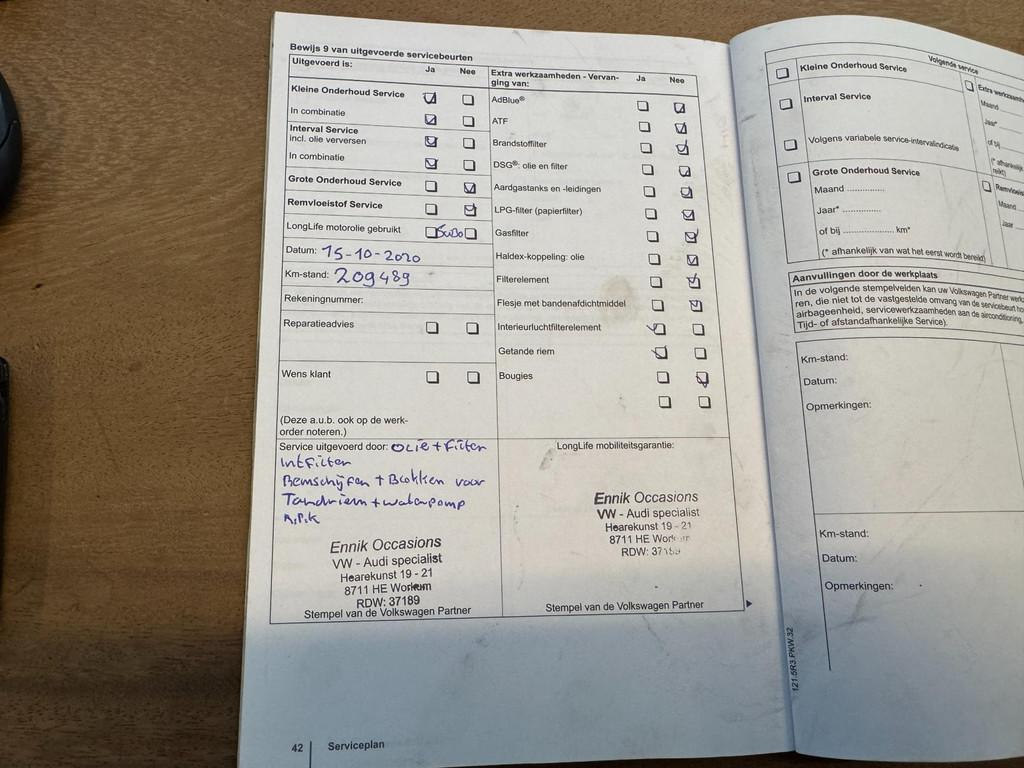 Bewijs 9 van uitgevoerde servicebeurten
Uitgevoerd is: Ja Nee
Kleine Onderhoud Service
In combinatie
Interval Service
incl. olie verversen
In combinatie
Grote Onderhoud Service
Remvloeistof Service
LongLife motorolie gebruikt 5w30
Datum: 15-10-2020
Km-stand: 209489
Rekeningnummer:
Reparatieadvies
Wens klant
(Deze a.u.b. ook op de werk-
order noteren.)
Service uitgevoerd door: Olie + Filter
Intfilter
Remschijfen + Blokken voor
Tandriem + waterpomp
A.P.K
Ennik Occasions
VW - Audi specialist
Hearekunst 19 - 21
8711 HE Workum
RDW: 37189
Stempel van de Volkswagen Partner
Extra werkzaamheden - Vervan- Ja Nee
ging van:
AdBlue®
ATF
Brandstoffilter
DSG®: olie en filter
Aardgastanks en -leidingen
LPG-filter (papierfilter)
Gasfilter
Haldex-koppeling: olie
Filterelement
Flesje met bandenafdichtmiddel
Interieurluchtfilterelement
Getande riem
Bougies
LongLife mobiliteitsgarantie:
Ennik Occasions
VW - Audi specialist
Hearekunst 19 - 21
8711 HE
RDW:
Stempel van de Volkswagen Partner
42 Serviceplan
Volgende service
Kleine Onderhoud Service
Interval Service
Volgens variabele service-intervalindicatie
Grote Onderhoud Service
Maand ...............
Jaar* ...............
of bij .................... km*
(* afhankelijk van wat het eerst wordt bereikt)
Extra
Maand
Jaar*
of bij
Maand
Jaar
Aanvullingen door de werkplaats
In de volgende stempelvelden kan uw Volkswagen Partner
ren, die niet tot de vastgestelde omvang van de servicebeurt
airbageenheid, servicewerkzaamheden aan de airconditioning,
Tijd- of afstandafhankelijke Service).
Km-stand:
Datum:
Opmerkingen:
Km-stand:
Datum:
Opmerkingen:
121.5R3.PKW.32